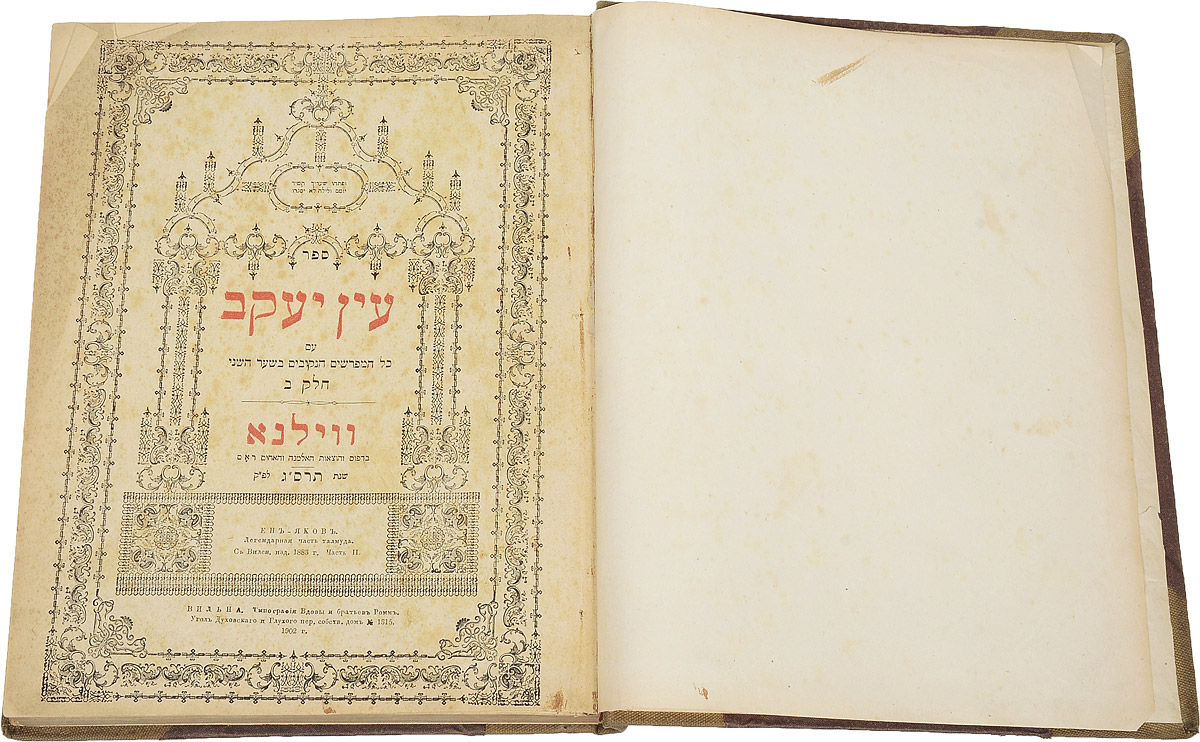 ופתחו שעריך תמיד
יומם ולילה לא יסגרו
ספר
עין יעקב
עם
כל המפרשים הנקובים בשער השני
חלק ב
ווילנא
בדפוס והוצאות האלמנה והאחים ראם
שנת תרס"ג לפ"ק
ЕНЪ-ЯКОВЪ.
Легендарная часть талмуда.
Съ Вилен. изд. 1883 г. Часть II.
ВИЛЬНА. Типографія Вдовы и братьевъ Роммъ.
Уголъ Духовскаго и Глухого пер, собств. домъ № 1315.
1902 г.